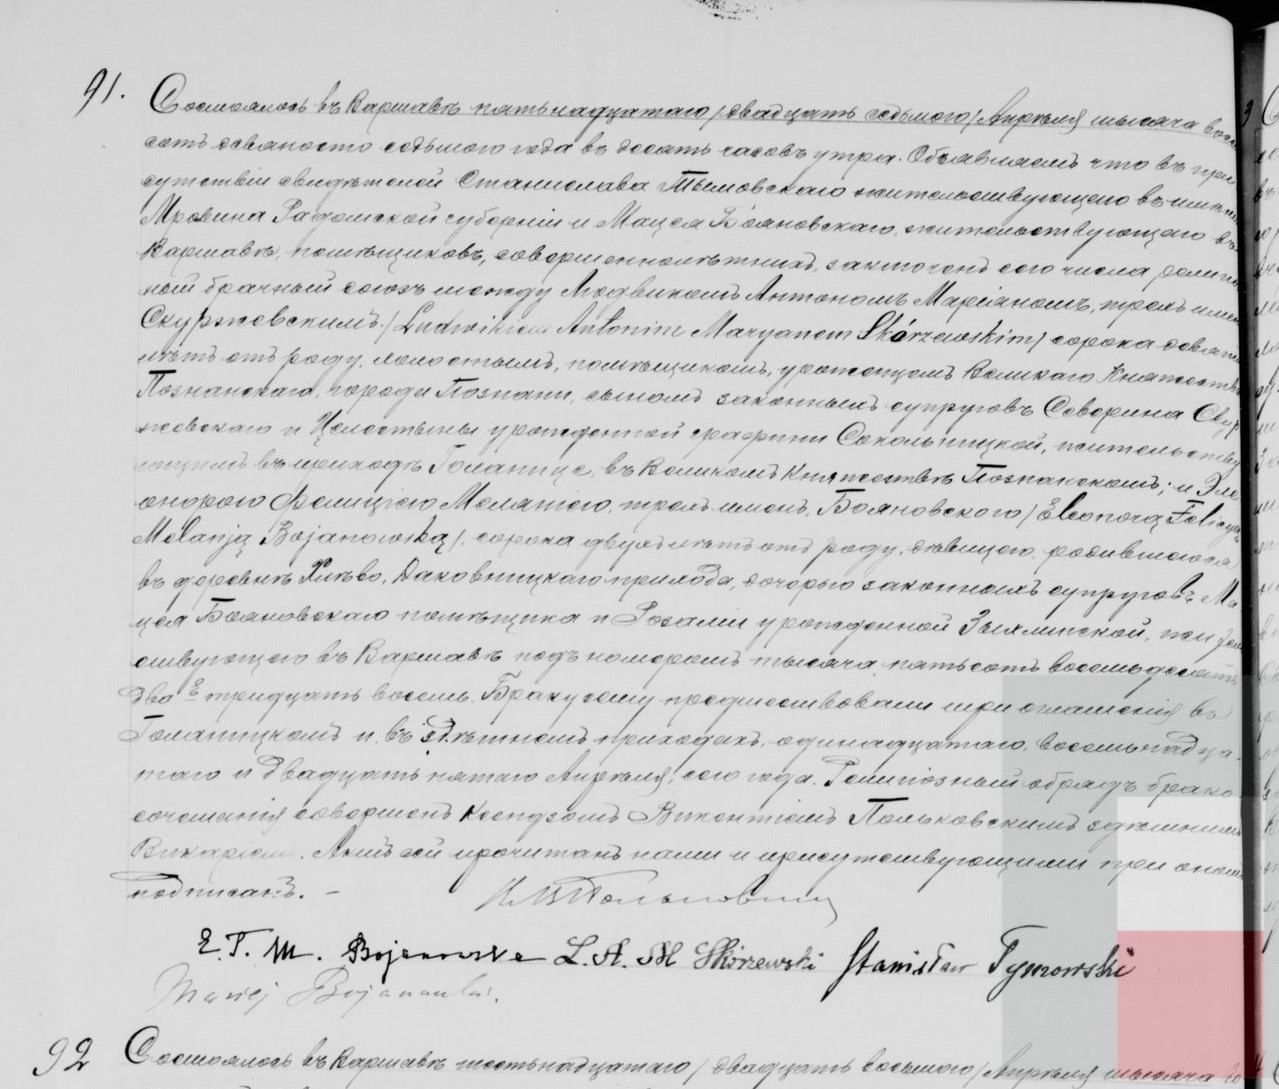 91. Состоялось въ Варшавѣ пятьнадцатаго /двадцать седьмого/ Апрѣля тысяча восемь
сотъ девяносто седьмого года въ десять часовъ утра. Объявляемъ что въ при
сутствіи свидѣтелей Станислава Тымовскаго жительствующаго въ имѣніи
Мровина Радомской губерніи и Мацея Бояновскаго, жительствующаго въ
Варшавѣ, помѣщиковъ, совершеннолѣтнихъ, заключенъ сего числа религіоз
ный брачный союзъ между Людвикомъ Антономъ Маріаномъ, трехъ именъ
Скуржевскимъ /Ludwikiem Antonim Maryanem Skórzewskim/ сорока девяти
лѣтъ отъ роду, холостымъ, помѣщикомъ, уроженцемъ Великаго Княжества
Познанскаго, города Познани, сыномъ законныхъ супруговъ Северина Скур
жевскаго и Целестыны урожденной графини Сокольницкой, жительству
ющимъ въ приходѣ Голанице, въ Великомъ Княжествѣ Познанскомъ; и Эле
онорою Фелиціею Меланіею, трехъ именъ, Бояновскою /Eleonorą Felicyą
Melanją Bojanowską/, сорока двухъ лѣтъ отъ роду, дѣвицею, родившеюся
въ деревнѣ Хлѣво, прихода, дочерью законныхъ супруговъ Ма
цея Бояновскаго помѣщика и Розаліи урожденной Зыхлинской, жительств
ствующею въ Варшавѣ подъ номеромъ тысяча пятьсотъ восемьдесятъ
два тридцать восемь. Браку сему предшествовали три оглашенія въ
Голаницкомъ и въ здѣшнемъ приходахъ, одинадцатаго, восемьнадца-
таго и двадцать пятаго Апрѣля, сего года. Религіозный обрядъ брако
сочетанія совершенъ Ксендзомъ Викентіемъ Польковскимъ здѣшнимъ
Викаріемъ. Актъ сей прочитанъ нами и присутствующими при ономъ
подписанъ. –
E. F. M. Bojanowska L. A. M Skórzewski Stanisław Tymowski
Maciej Bojanowski.
92 Состоялось въ Варшавѣ шестьнадцатаго /двадцать восьмого/ Апрѣля тысяча